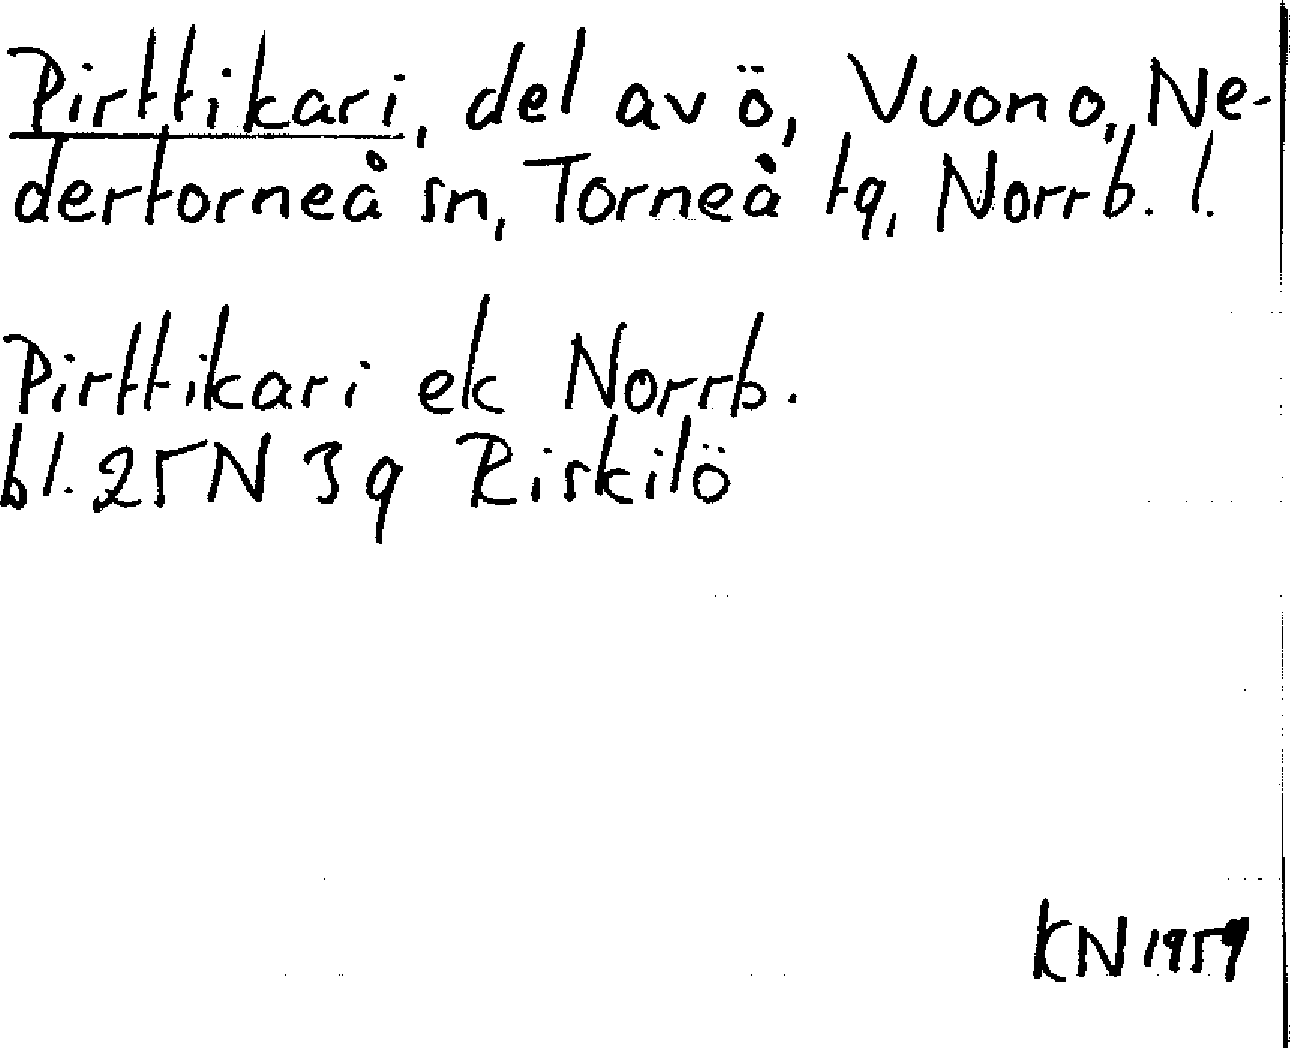 Pirttikari, del av ö, Vuono, Ne-
dertorneå sn, Torneå tg, Norrb. l.
Pirttikari ek Norrb.
bl. 25 N 3 g Riskilö
KN 1959